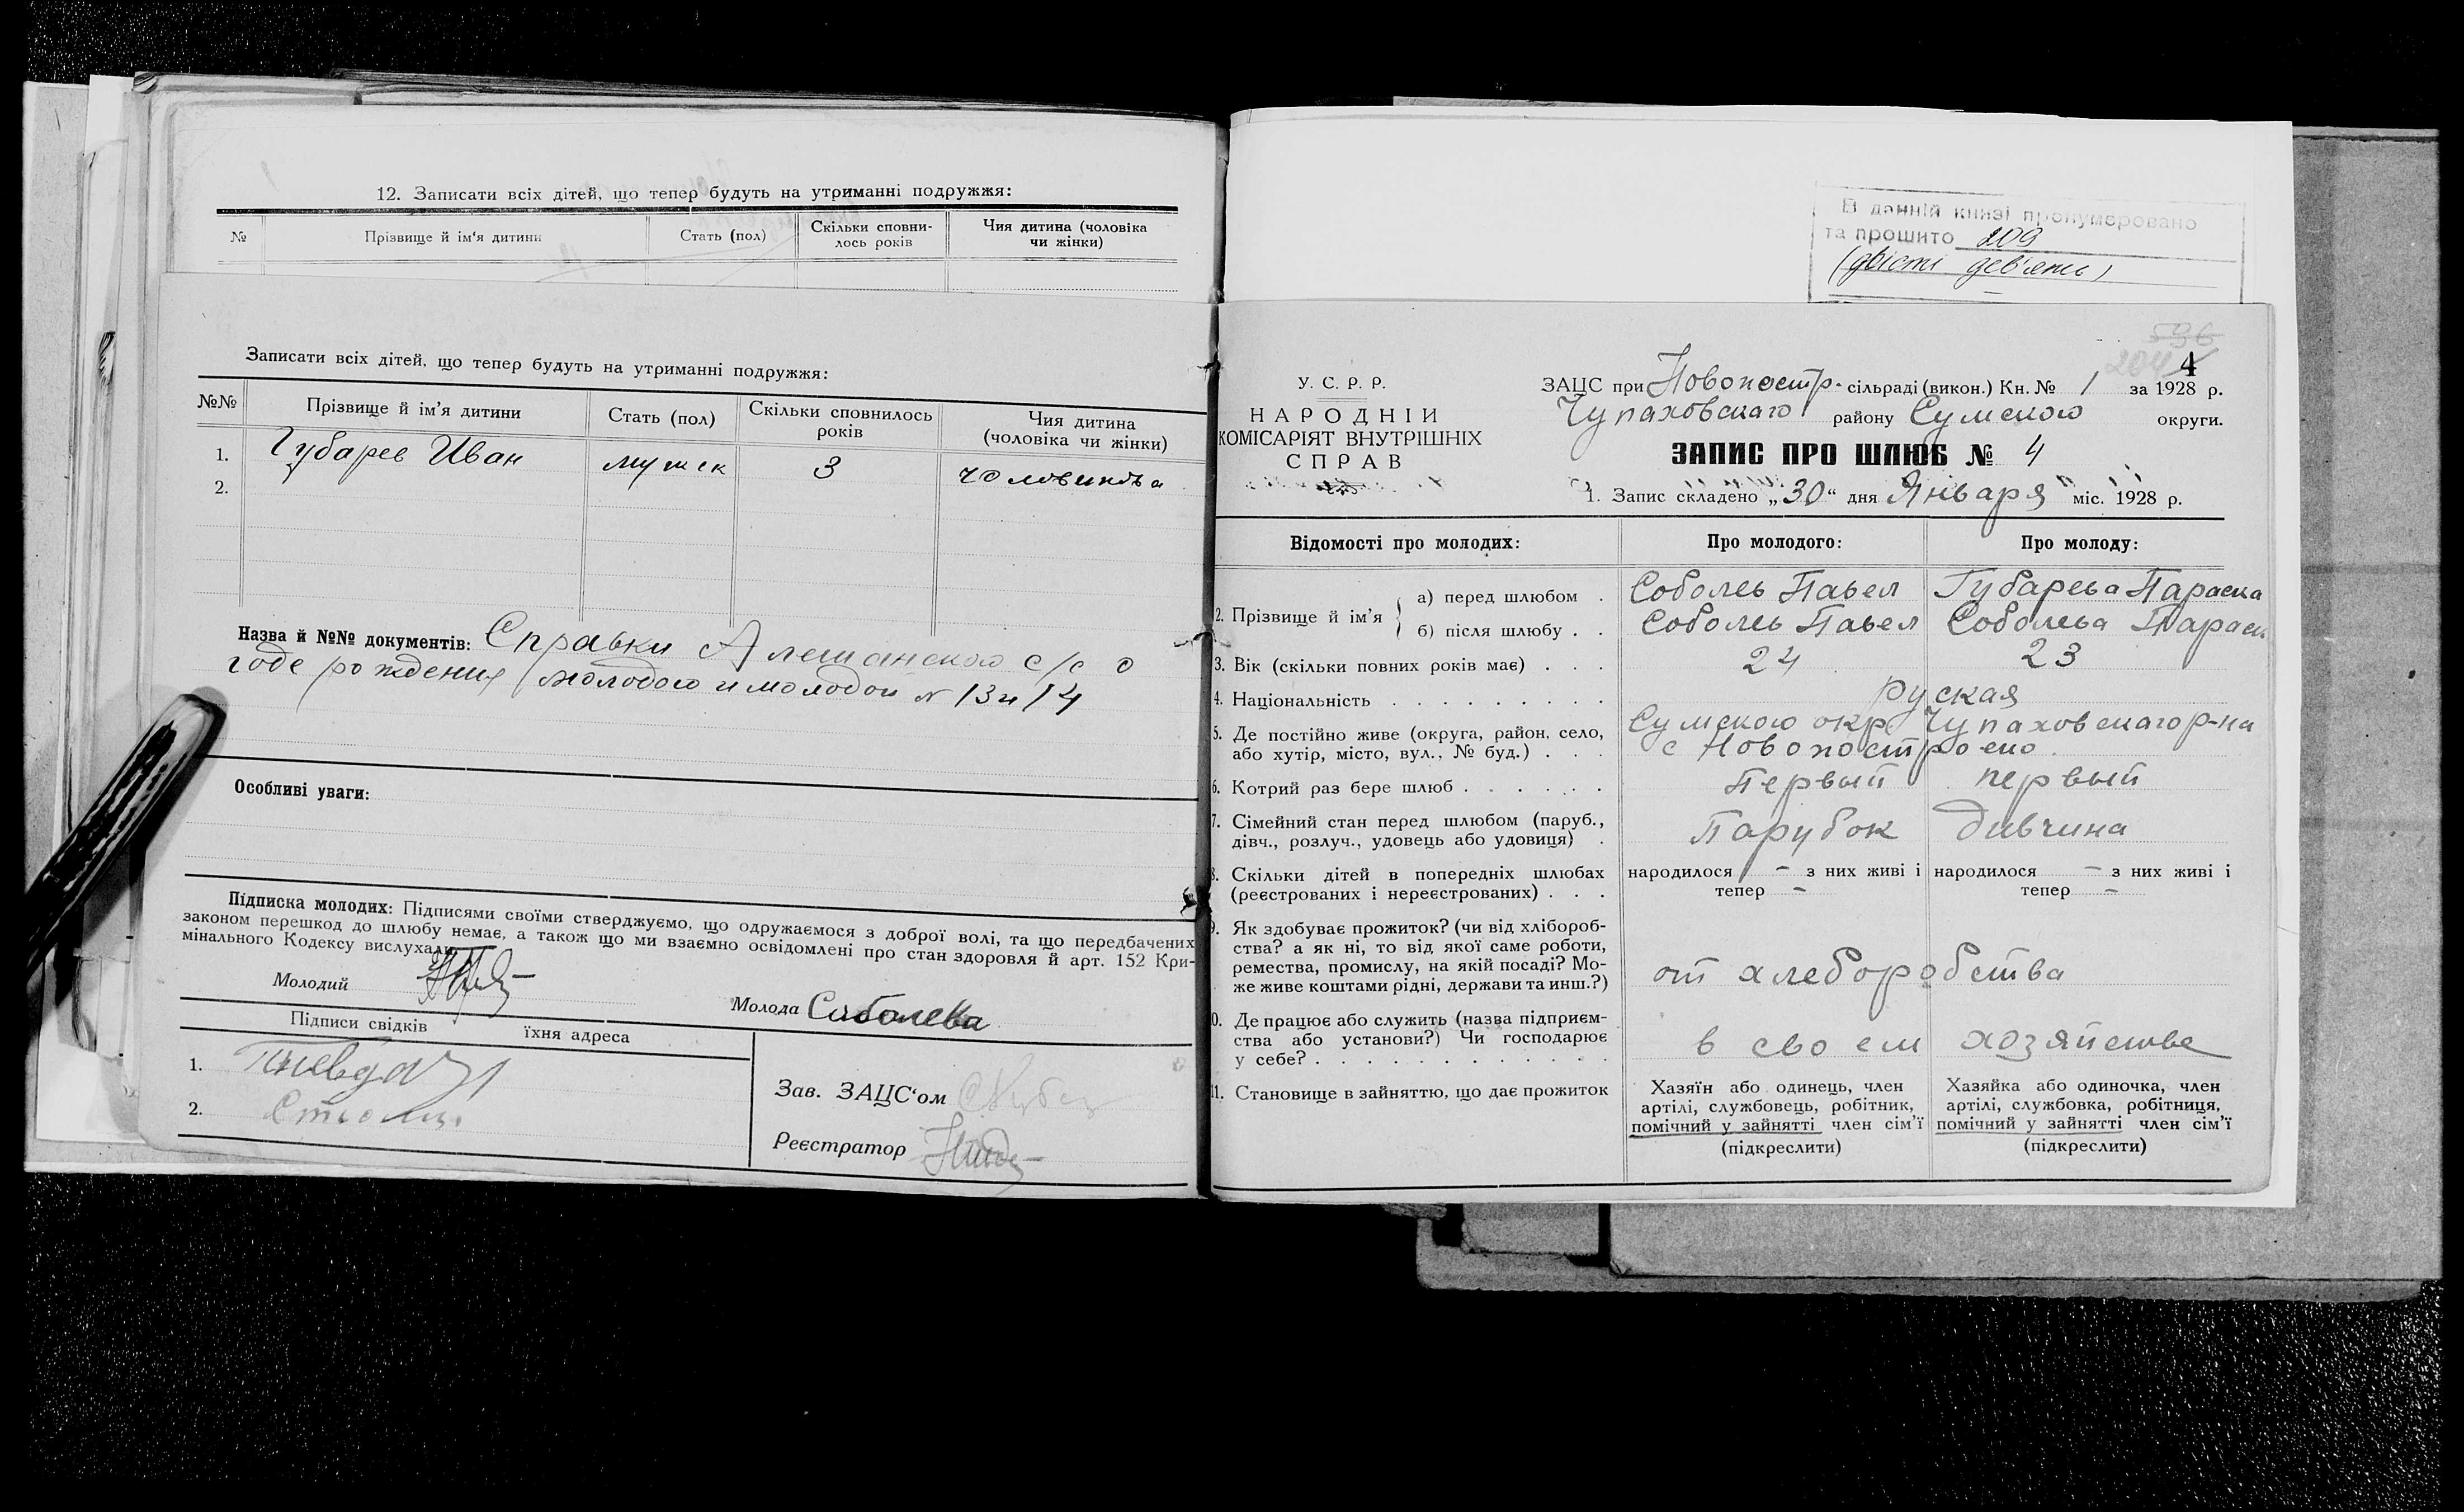 12. Записати всіх дітей, що тепер будуть на утриманні подружжя:
№ Прізвище й ім'я дитини Стать (пол) Скільки сповни-лось років Чия дитина (чоловіка чи жінки)
Записати всіх дітей, що тепер будуть на утриманні подружжя:
№№ Прізвище й ім'я дитини Стать (пол) Скільки сповнилось років Чия дитина (чоловіка чи жінки)
1. Губарев Иван мужск 3
2.
Назва й №№ документів: Справки Алешанского с/с о
годе рождения молодого и молодой № 13 и 14
Особливі уваги:
Підписка молодих: Підписями своїми стверджуємо, що одружаємося з доброї волі, та що передбачених
законом перешкод до шлюбу немає, а також що ми взаємно освідомлені про стан здоровля й арт. 152 Кри-
мінального Кодексу вислухали.
Молодий
Молода Саболева
Підписи свідків їхня адреса
1.
2.
Зав. ЗАЦС'ом
Реєстратор
В данній книзі пронумеровано
та прошито 209
(двісті дев'ять)
596
204
4
У. С. Р. Р.
НАРОДНІЙ
КОМІСАРІЯТ ВНУТРІШНІХ
СПРАВ
ЗАЦС при Новопостр. сільраді (викон.) Кн. № 1 за 1928 р.
Чупаховскаго району Сумского округи.
ЗАПИС ПРО ШЛЮБ № 4
1. Запис складено „30“ дня Января міс. 1928 р.
Відомості про молодих: Про молодого: Про молоду:
2. Прізвище й ім'я
а) перед шлюбом . Соболев Павел Губарева Параска
б) після шлюбу . . Соболев Павел Соболева Параск
3. Вік (скільки повних років має) . . . 24 23
4. Національність . . . . . . . . . руская
5. Де постійно живе (округа, район, село, Сумского окр. Чупаховскаго р-на
або хутір, місто, вул., № буд.) . . . с Новопостроено
6. Котрий раз бере шлюб . . . . . . Первый первый
7. Сімейний стан перед шлюбом (паруб., Парубок Дивчина
дівч., розлуч., удовець або удовиця) .
8. Скільки дітей в попередніх шлюбах народилося – з них живі і народилося – з них живі і
(реєстрованих і нереєстрованих) . . . тепер – тепер –
9. Як здобуває прожиток? (чи від хлібороб-
ства? а як ні, то від якої саме роботи,
ремества, промислу, на якій посаді? Мо- от хлеборобства
же живе коштами рідні, держави та инш.?)
10. Де працює або служить (назва підприєм-
ства або установи?) Чи господарює в своем хозяйстве
у себе? . . . . . . . . . . . .
11. Становище в зайняттю, що дає прожиток
Хазяїн або одинець, член
артілі, службовець, робітник,
помічний у зайнятті член сім'ї
(підкреслити)
Хазяйка або одиночка, член
артілі, службовка, робітниця,
помічний у зайнятті член сім'ї
(підкреслити)